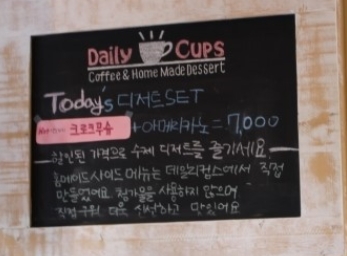 Daily Cups
Coffee & Home Made Dessert
Today's 디저트SET
크로크무슈 +아메리카노 = 7,000
할인된 가격으로 수제 디저트를 즐기세요
홈메이드사이드 메뉴는 데일리컵스에서 직접
만들었어요 첨가물을 사용하지 않으며
직접 구워 더욱 신선하고 맛있어요